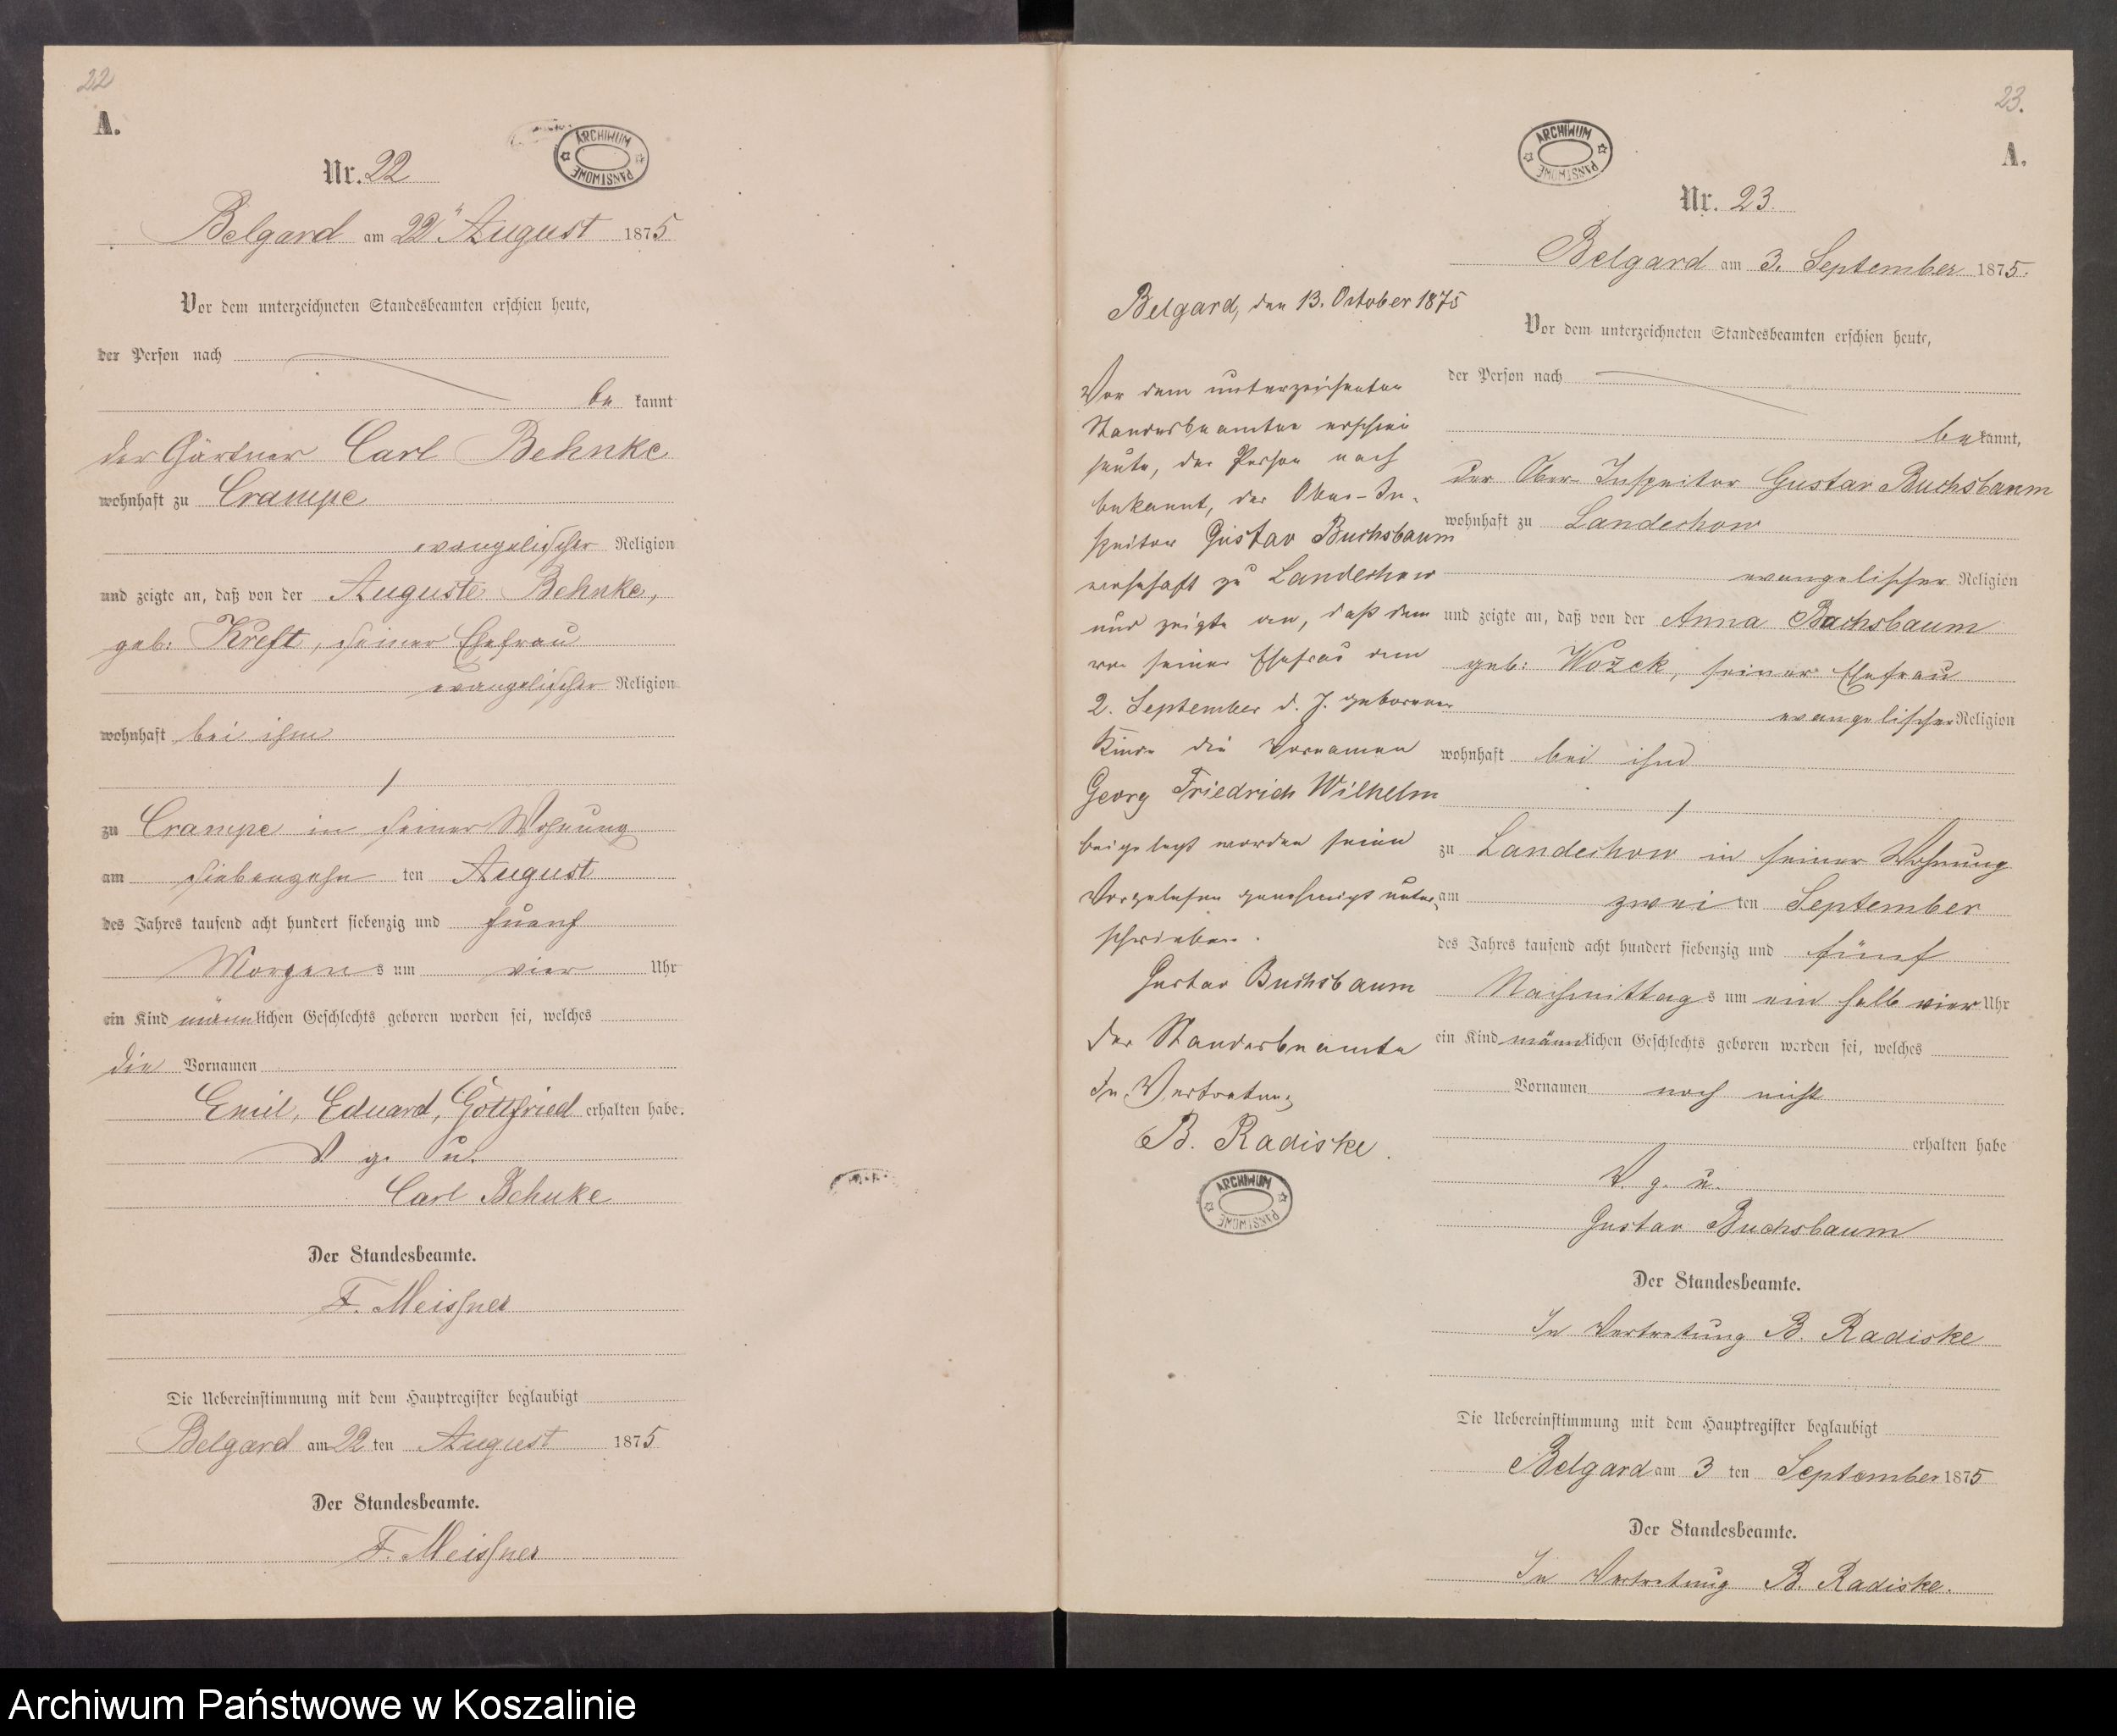 22
A.
ARCHIWUM PAŃSTWOWE
Nr. 22
Belgard am 22 August 1875
Vor dem unterzeichneten Standesbeamten erschien heute,
der Person nach
be kannt
der Gärtner Carl Behnke
wohnhaft zu Crampe
evangelischer Religion
und zeigte an, daß von der Auguste Behnke,
geb: Kreft, seiner Ehefrau
evangelischer Religion
wohnhaft bei ihm
zu Crampe in seiner Wohnung
am siebenzehn ten August
des Jahres tausend acht hundert siebenzig und fuenf
Morgens um vier Uhr
ein Kind männlichen Geschlechts geboren worden sei, welches
die Vornamen
Emil, Eduard, Gottfried erhalten habe.
V. g. u.
Carl Behnke
Der Standesbeamte.
F. Meissner
Die Uebereinstimmung mit dem Hauptregister beglaubigt
Belgard am 22 ten August 1875
Der Standesbeamte.
F. Meissner
Belgard, den 13. October 1875
Vor dem unterzeichneten
Standesbeamten erschien
heute, der Person nach
bekannt, der Ober-In-
spector Gustav Buchsbaum
wohnhaft zu Landechow
und zeigte an, daß dem
von seiner Ehefrau am
2. September d. J. geborenen
Kinde die Vornamen
Georg Friedrich Wilhelm
beigelegt worden seien
Vorgelesen genehmigt unter-
schrieben.
Gustav Buchsbaum
Der Standesbeamte
In Vertretung
B. Radiske.
ARCHIWUM PAŃSTWOWE
23.
A.
ARCHIWUM PAŃSTWOWE
Nr. 23.
Belgard am 3. September 1875.
Vor dem unterzeichneten Standesbeamten erschien heute,
der Person nach
bekannt,
der Ober-Inspector Gustav Buchsbaum
wohnhaft zu Landechow
evangelischer Religion
und zeigte an, daß von der Anna Buchsbaum
geb: Wozek, seiner Ehefrau
evangelischer Religion
wohnhaft bei ihm
zu Landechow in seiner Wohnung
am zwei ten September
des Jahres tausend acht hundert siebenzig und fünf
Nachmittags um ein halb vier Uhr
ein Kind männlichen Geschlechts geboren worden sei, welches
Vornamen noch nicht
erhalten habe
V. g. u.
Gustav Buchsbaum
Der Standesbeamte.
In Vertretung B. Radiske
Die Uebereinstimmung mit dem Hauptregister beglaubigt
Belgard am 3 ten September 1875
Der Standesbeamte.
In Vertretung B. Radiske.
Archiwum Państwowe w Koszalinie